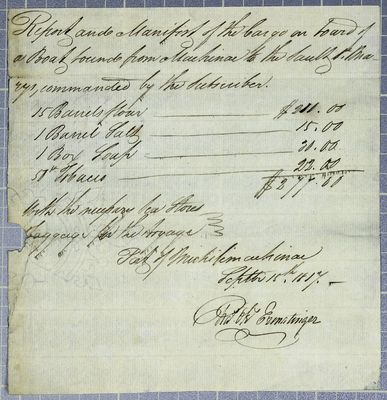 Report and Manifest of the Cargo on board of
a Boat bound from Mackinac to the Sault St. Ma-
rys, commanded by the Subscriber.
15 Barrels flour $ 211.00
1 Barrel Salt 15.00
1 Box Soap 20.00
Tobacco 22.00
$ 277.00
With his necessary Sea Stores
baggage for the voyage
Port of Michilimackinac
Septr 15th 1817.
Ermatinger